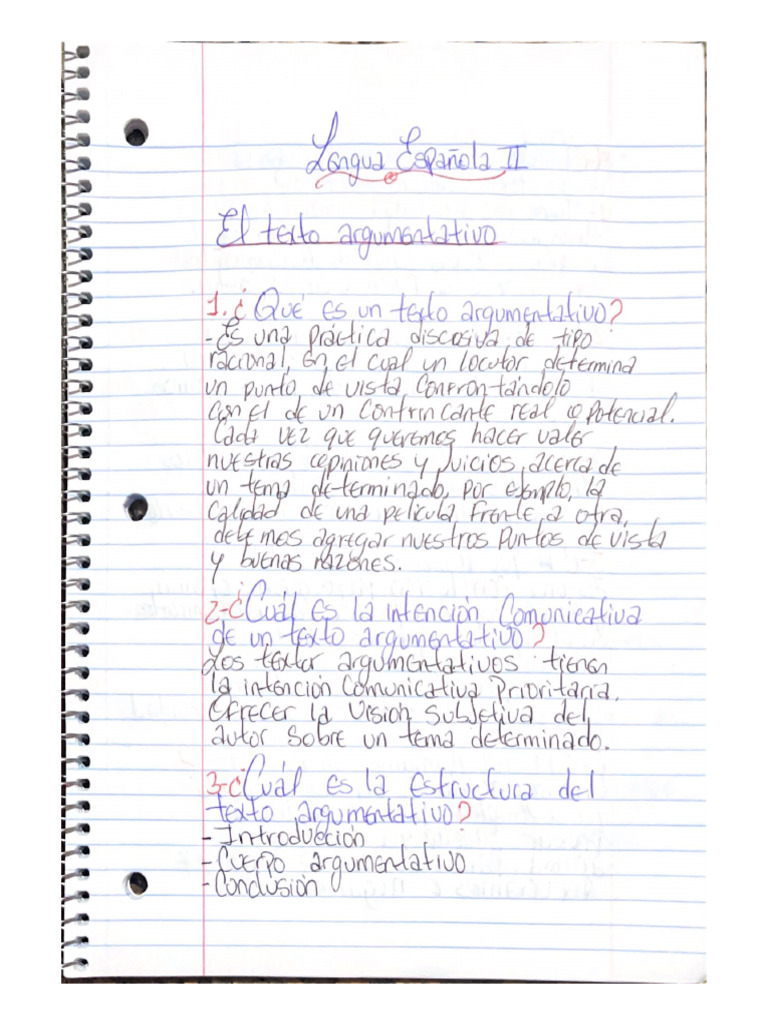 Lengua Española II
El texto argumentativo
1. ¿Qué es un texto argumentativo?
- Es una práctica discosiva, de tipo
racional, en el cual un locutor determina
un punto de vista, confrontándolo
con el de un contrincante real o potencial.
Cada vez que queremos hacer valer
nuestras opiniones y juicios, acerca de
un tema determinado, por ejemplo, la
calidad de una película frente a otra,
debemos agregar nuestros puntos de vista
y buenas razones.
2-¿Cuál es la intención comunicativa
de un texto argumentativo?
Los textor argumentativos tienen
la intención comunicativa prioritaria,
ofrecer la visión subjetiva del
autor sobre un tema determinado.
3-¿Cuál es la estructura del
texto argumentativo?
- Introducción
- Cuerpo argumentativo
- Conclusión